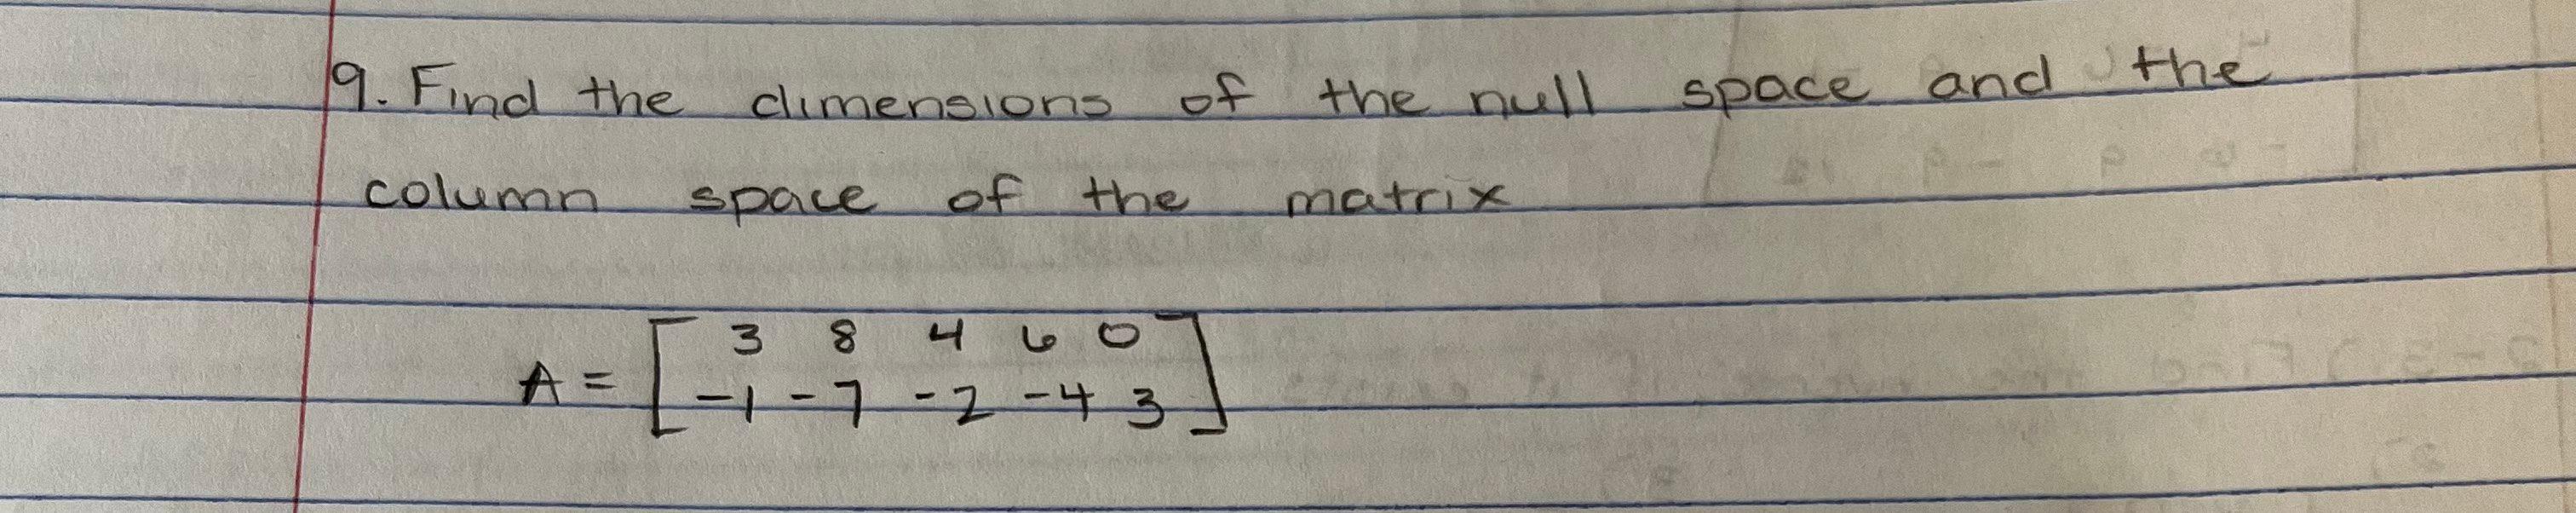 9. Find the dimensions of the null space and the
column space of the matrix
A = [ 3 8 4 6 0
-1 -7 -2 -4 3 ]